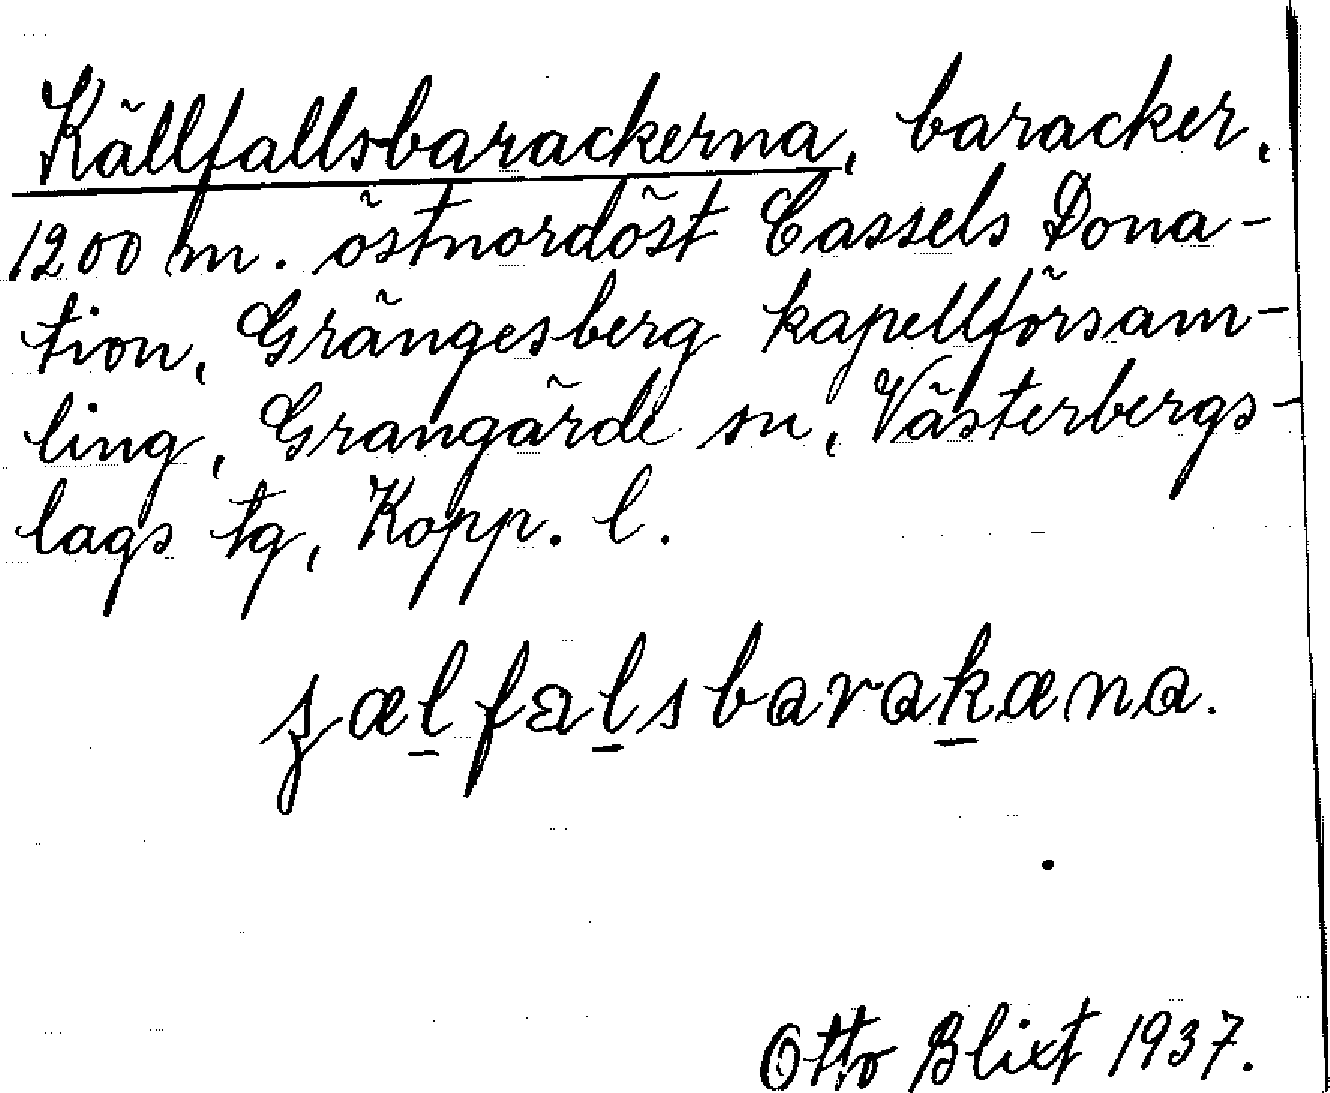 Källfallsbarackerna, baracker,
1200 m. östnordöst Cassels Dona-
tion, Grängesberg kapellförsam-
ling, Grangärde sn, Västerbergs-
lags tg, Kopp. l.
ʂæl̲fal̲sbarak̲æna.
Otto Blixt 1937.